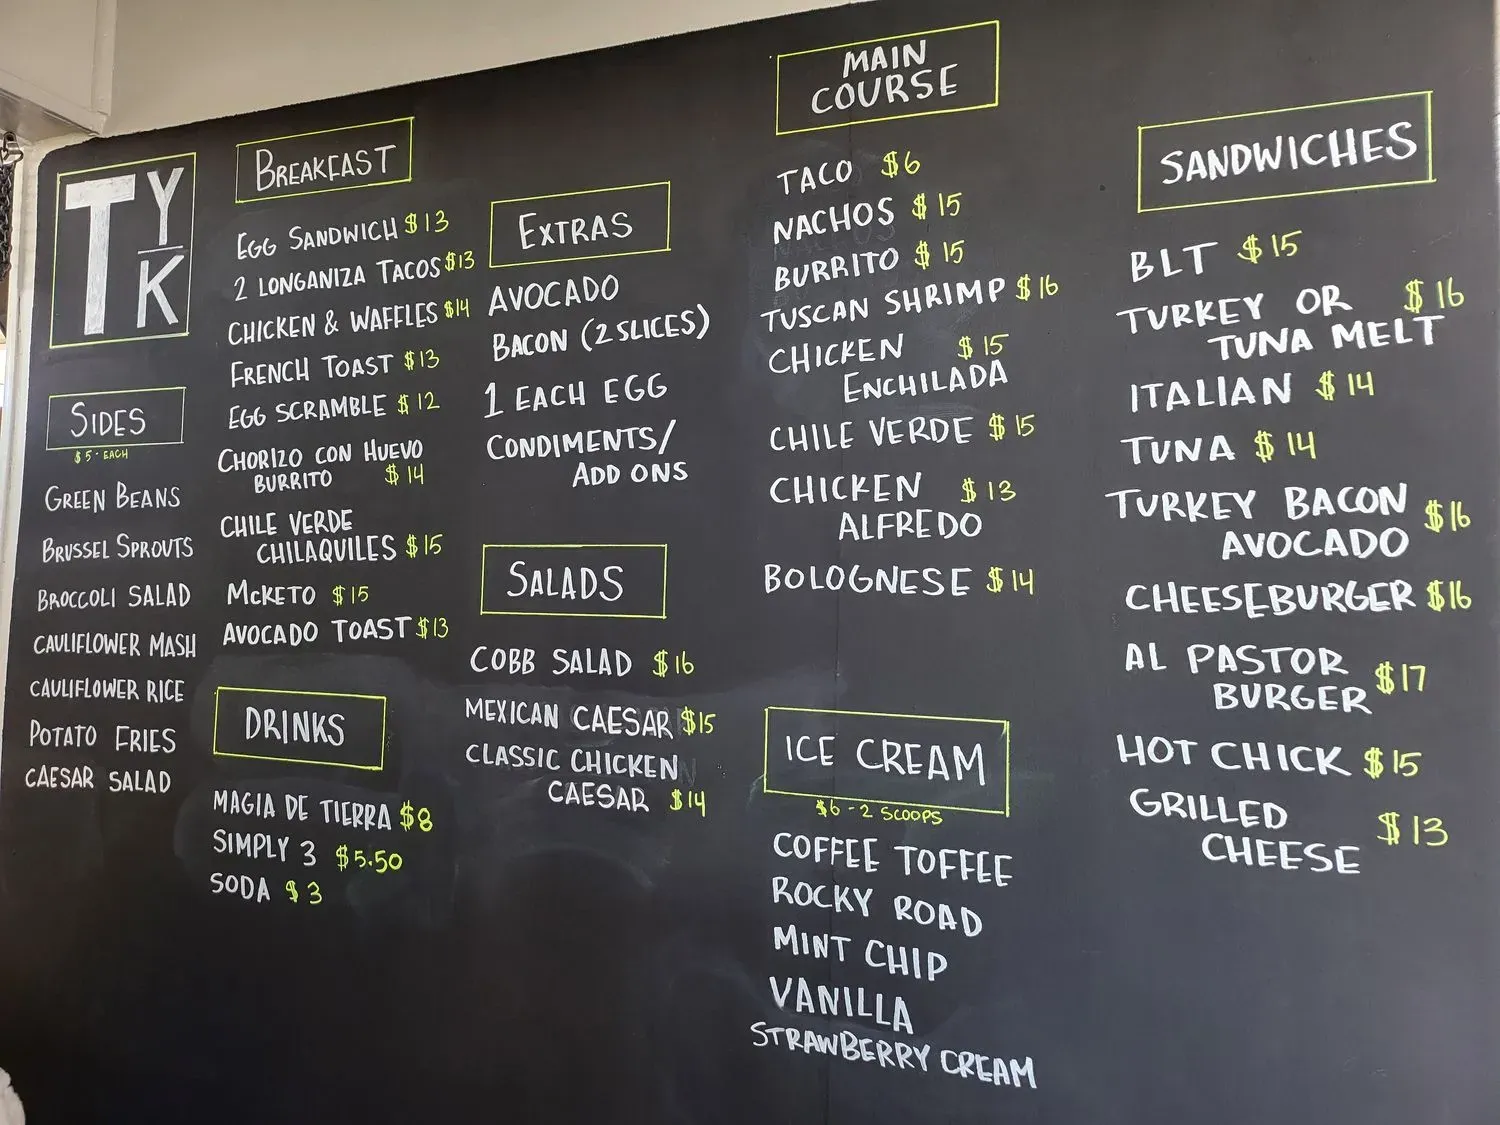 T Y K
SIDES
$5 - EACH
GREEN BEANS
BRUSSEL SPROUTS
BROCCOLI SALAD
CAULIFLOWER MASH
CAULIFLOWER RICE
POTATO FRIES
CAESAR SALAD
BREAKFAST
EGG SANDWICH $13
2 LONGANIZA TACOS $13
CHICKEN & WAFFLES $14
FRENCH TOAST $13
EGG SCRAMBLE $12
CHORIZO CON HUEVO
BURRITO $14
CHILE VERDE
CHILAQUILES $15
MCKETO $15
AVOCADO TOAST $13
DRINKS
MAGIA DE TIERRA $8
SIMPLY 3 $5.50
SODA $3
EXTRAS
AVOCADO
BACON (2 SLICES)
1 EACH EGG
CONDIMENTS/
ADD ONS
SALADS
COBB SALAD $16
MEXICAN CAESAR $15
CLASSIC CHICKEN
CAESAR $14
MAIN
COURSE
TACO $6
NACHOS $15
BURRITO $15
TUSCAN SHRIMP $16
CHICKEN $15
ENCHILADA
CHILE VERDE $15
CHICKEN $13
ALFREDO
BOLOGNESE $14
ICE CREAM
$6 - 2 SCOOPS
COFFEE TOFFEE
ROCKY ROAD
MINT CHIP
VANILLA
STRAWBERRY CREAM
SANDWICHES
BLT $15
TURKEY OR $16
TUNA MELT
ITALIAN $14
TUNA $14
TURKEY BACON $16
AVOCADO
CHEESEBURGER $16
AL PASTOR $17
BURGER
HOT CHICK $15
GRILLED $13
CHEESE